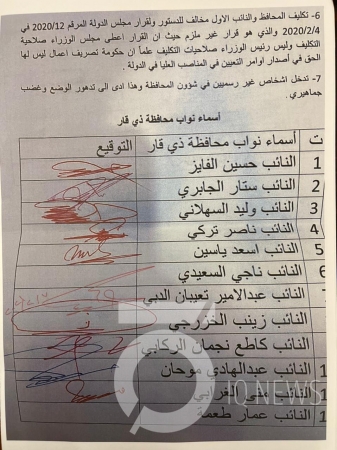 6- تكليف المحافظ والنائب الاول مخالف للدستور ولقرار مجلس الدولة المرقم 2020/12 في
2020/2/4 والذي هو قرار غير ملزم حيث ان القرار اعطى مجلس الوزراء صلاحية
التكليف وليس رئيس الوزراء صلاحيات التكليف علماً ان حكومة تصريف اعمال ليس لها
الحق في اصدار اوامر التعيين في المناصب العليا في الدولة .
7- تدخل اشخاص غير رسميين في شؤون المحافظة وهذا ادى الى تدهور الوضع وغضب
جماهيري .
أسماء نواب محافظة ذي قار
ت أسماء نواب محافظة ذي قار التوقيع
1 النائب حسين الفايز
2 النائب ستار الجابري
3 النائب وليد السهلاني
4 النائب ناصر تركي
5 النائب اسعد ياسين
6 النائب ناجي السعيدي
7 النائب عبدالامير تعيبان الدبي
النائب زينب الخزرجي
النائب كاطع نجمان الركابي
1 النائب عبدالهادي موحان
1 النائب منى الغرابي
1 النائب عمار طعمة
IQ NEWS